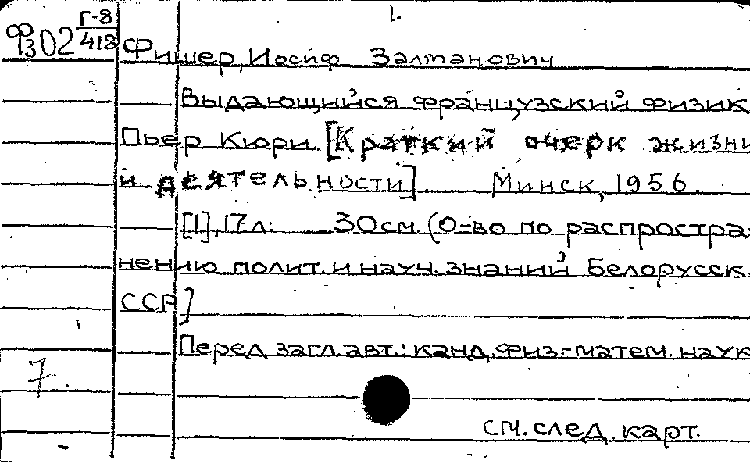 1.
Г-8
ФЗ02 418
Фишер, Иосиф Залтанович
Выдающийся французский физик
Пьер Кюри. [Краткий очерк жизни
и деятельности] Минск, 1956.
[1], 17 л. 30 см. (О-во по распростра-
нению полит. и науч. знаний Белорусск.
ССР]
Перед загл. авт.: канд. физ.-матем. наук
7.
см. след. карт.